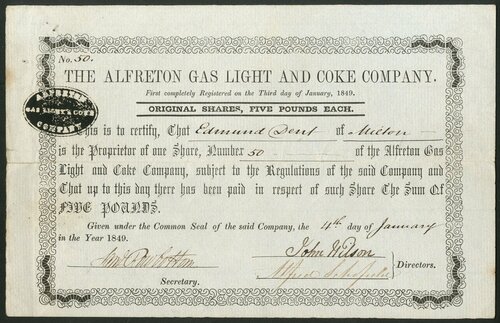 No. 50.
THE ALFRETON GAS LIGHT AND COKE COMPANY.
First completely Registered on the Third day of January, 1849.
ORIGINAL SHARES, FIVE POUNDS EACH.
ALFRETON
GAS LIGHT & COKE
COMPANY
This is to certify, That Edmund Dent of Milton
is the Proprietor of one Share, Number 50 of the Alfreton Gas
Light and Coke Company, subject to the Regulations of the said Company and
That up to this day there has been paid in respect of such Share The Sum Of
FIVE POUNDS.
Given under the Common Seal of the said Company, the 4th day of January
in the Year 1849.
John Wilson
Directors.
Secretary.